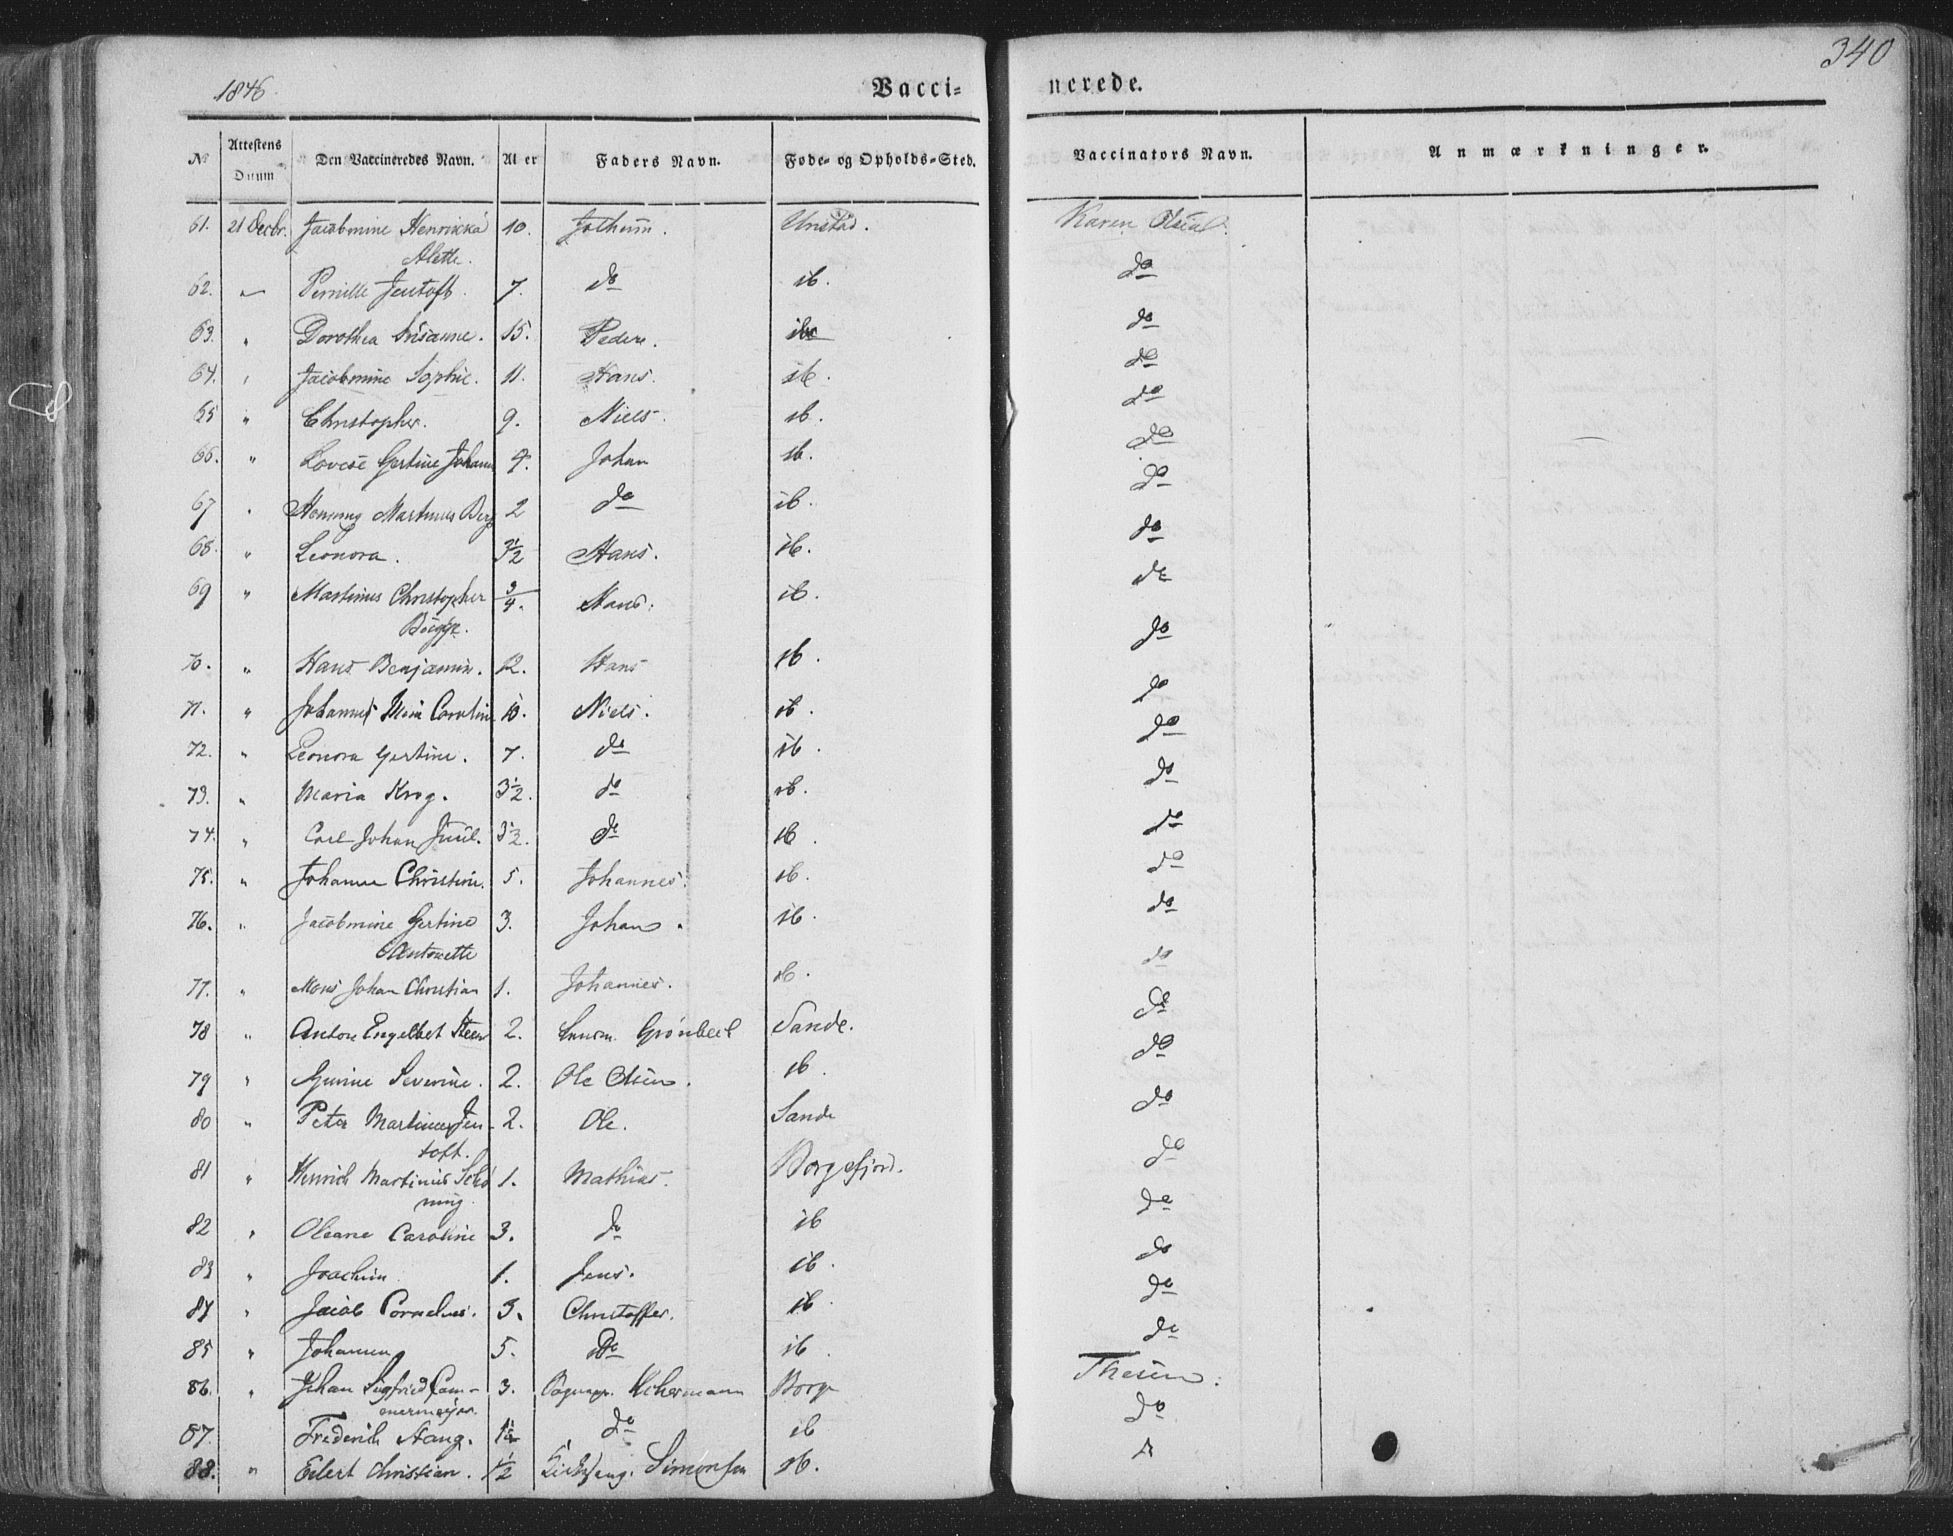 340
1846
Vacci-nerede.
No Attestens Datum Den Vaccineredes Navn. Alder Faders Navn. Føde- og Opholds-Sted. Vaccinators Navn. Anmærkninger.
61. 21 Decbr. Jacobmine Henrikka 10. Unstad. Karen Olsen
Alette.
62. " Pernille Jentoft 7. do ib. do
63. " Dorothea Susanne. 15. Peder. do
64. " Jacobmine Sophie. 11. Hans. ib. do
65 " Christopher. 9. Niels. ib. do
66. " Lovise Gertine Johanne 4. Johan ib. do
67 " Henning Martinus Berg 2 do ib. do
68. " Leonora. 3½ Hans. ib. do
69 " Martinus Christopher 3/4. Hans. ib. do
Bügge.
70. " Hans Benjamin. 12. Hans ib. do
71. " Johannes Caroline 10. Niels. ib. do
72. " Leonora Gertine. 7. do ib. do
73. " Maria Krog. 3½. do ib. do
74. " Carl Johan Juul. do ib. do
75. " Johanne Christine. 5. Johannes. ib. do
76. " Jacobmine Gertine 3. Johan. ib. do
Antonette
77. " Mons Johan Christian 1. Johannes. ib. do
78 " Anton Engelbet Steen 2. Grønbeck Sande. do
79 " Severine. 2. Ole Olsen. ib. do
80 " Peter Martinus Jen- 2. Ole. Sande do
toft.
81 " Henrich Martinus Schö 1. Mathias. Borgefjord. do
ning.
82 " Oleane Caroline 3. do ib do
83 " Joachim 1. Jens. ib. do
84 " Jacob Cornelius. 3. Christoffer. ib. do
85 " Johanna 5. do ib. do
86. " Johan Sigfried Cam- 3. Ackermann Borge Thesen.
mermejer.
87. Frederich Stang. 1½ do ib do
88. " Eilert Christian. 1½ Kirkesang. Simonsen ib.